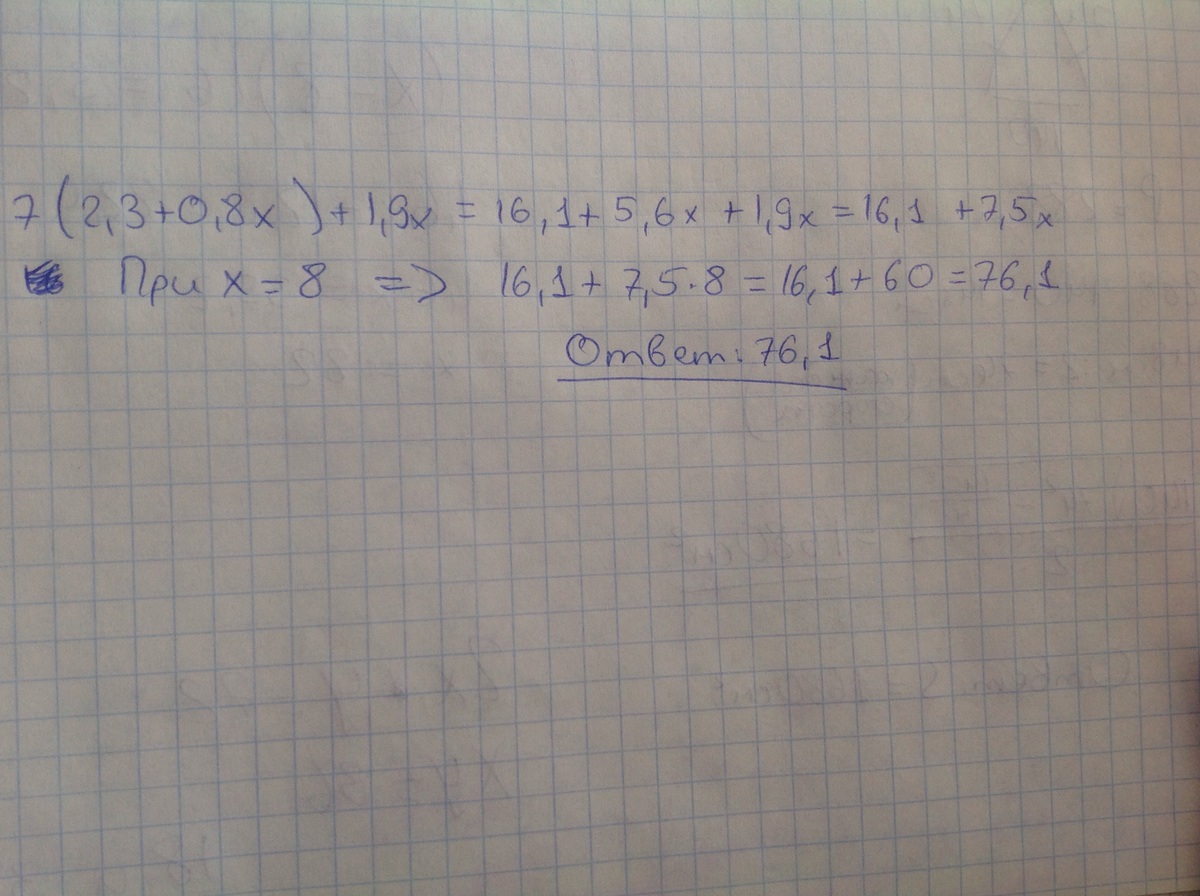 7(2,3+0,8x)+1,9x = 16,1+5,6x+1,9x=16,1 +7,5x
При x=8 => 16,1+7,5·8=16,1+60=76,1
Ответ: 76,1